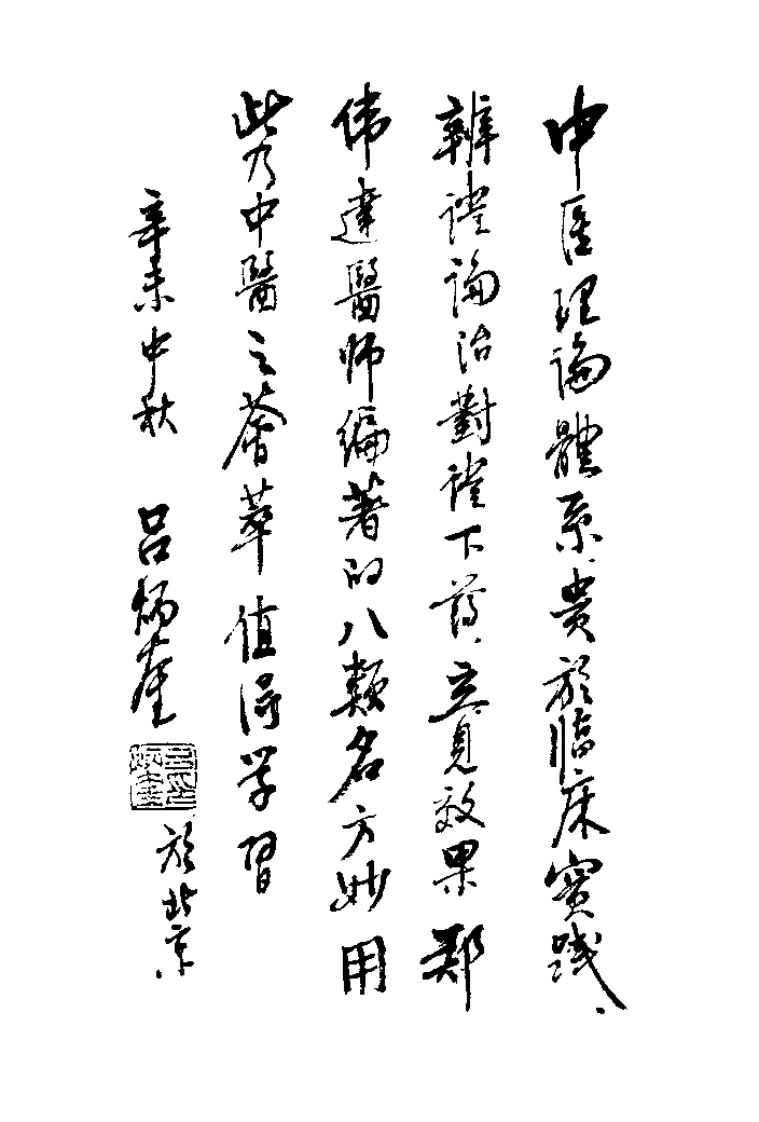 中医理論體系、貴於臨床實践、
辨證論治對證下葯、立見效果 鄭
偉達醫師編著的八類名方妙用
此乃中醫之薈萃值得学習
辛未中秋 吕炳奎
吕炳奎
於北京